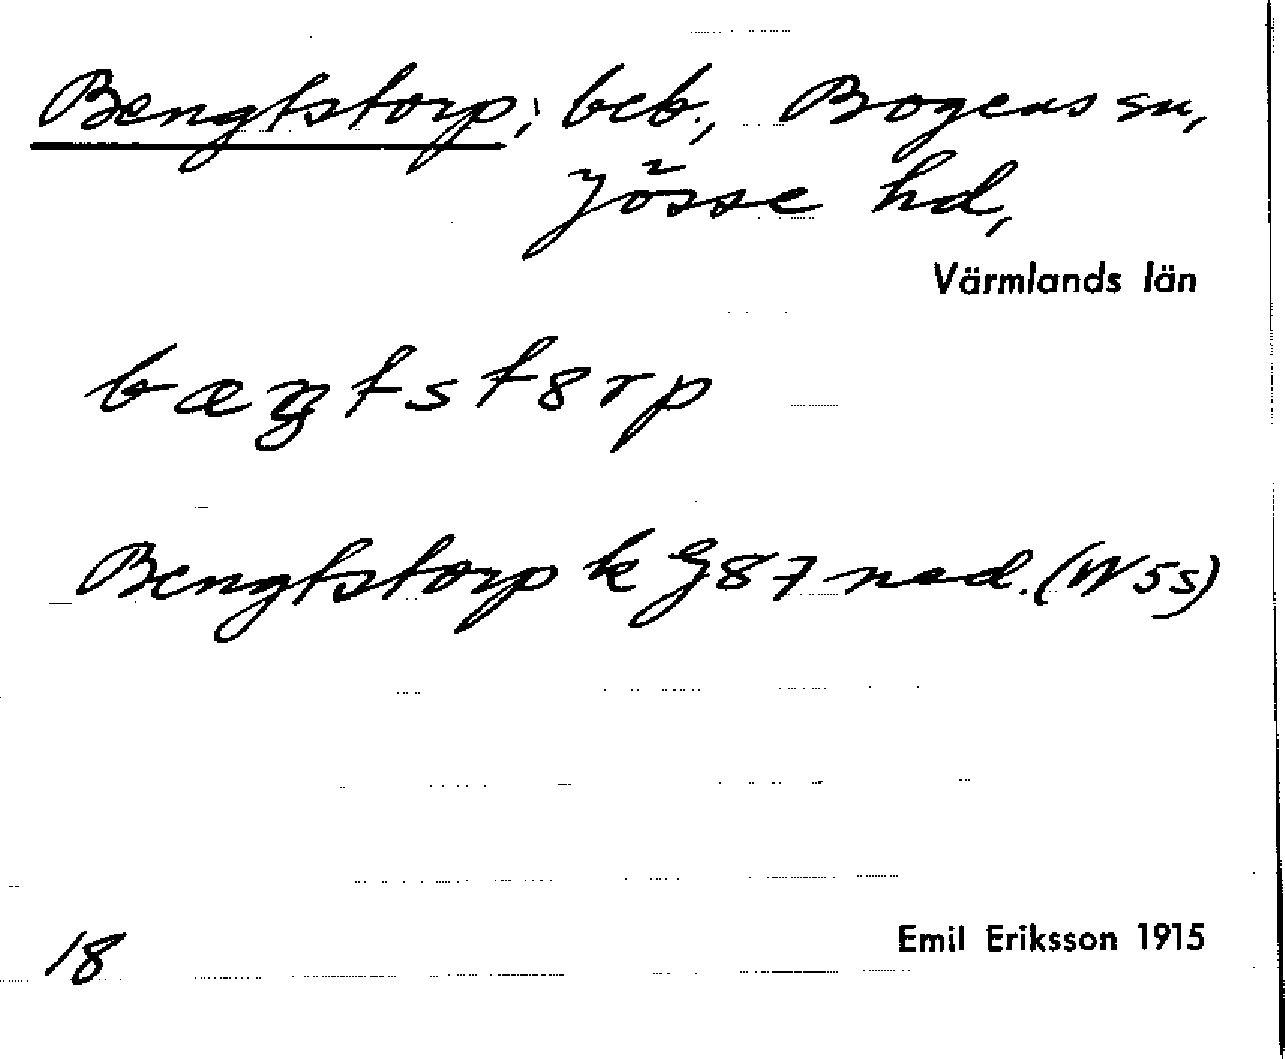 Bengtstorp; beb., Bogens sn,
Jösse hd,
Värmlands län
bæŋtst8rp
Bengtstorp k J87 ned. (W 5s)
18
Emil Eriksson 1915